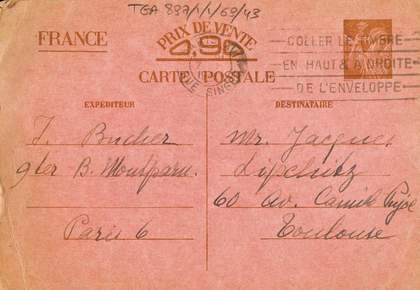 TGA 897/1/1/69/43
FRANCE
PRIX DE VENTE
0,90
CARTE POSTALE
COLLER LE TIMBRE
EN HAUT & A DROITE
DE L'ENVELOPPE
EXPÉDITEUR
J. Bucher
9ter B. Montparn.
Paris 6
DESTINATAIRE
Mr. Jacques
Lipchitz
60 Av. Camille Pujol
Toulouse